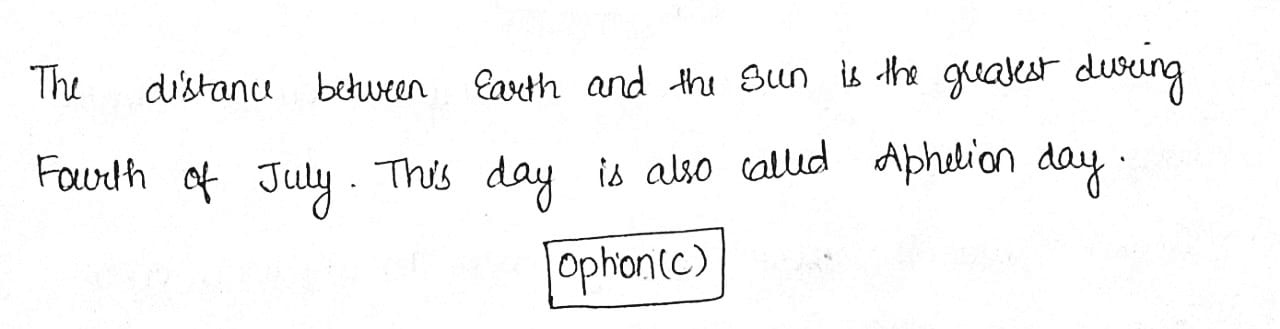 The distance between Earth and the Sun is the greatest during
Fourth of July. This day is also called Aphelion day.
Option(C)